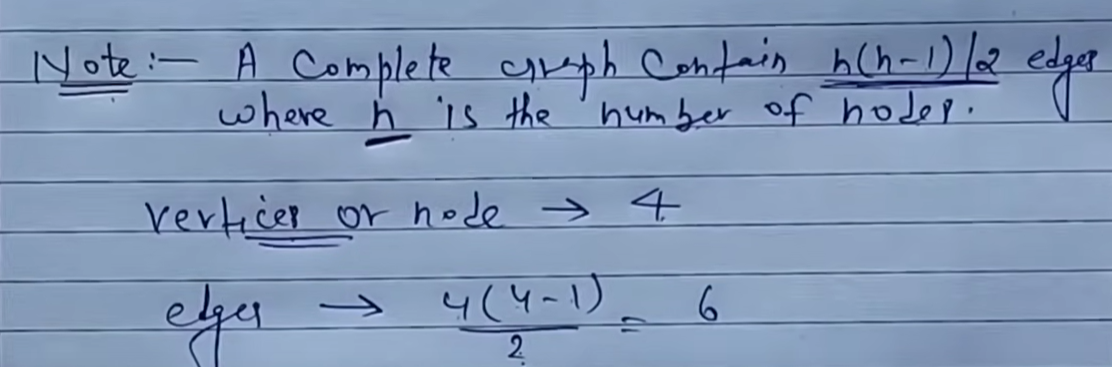 Note:- A Complete graph Contain n(n-1)/2 edges
where n is the number of nodes.
vertices or node → 4
edges → 4(4-1)/2 = 6